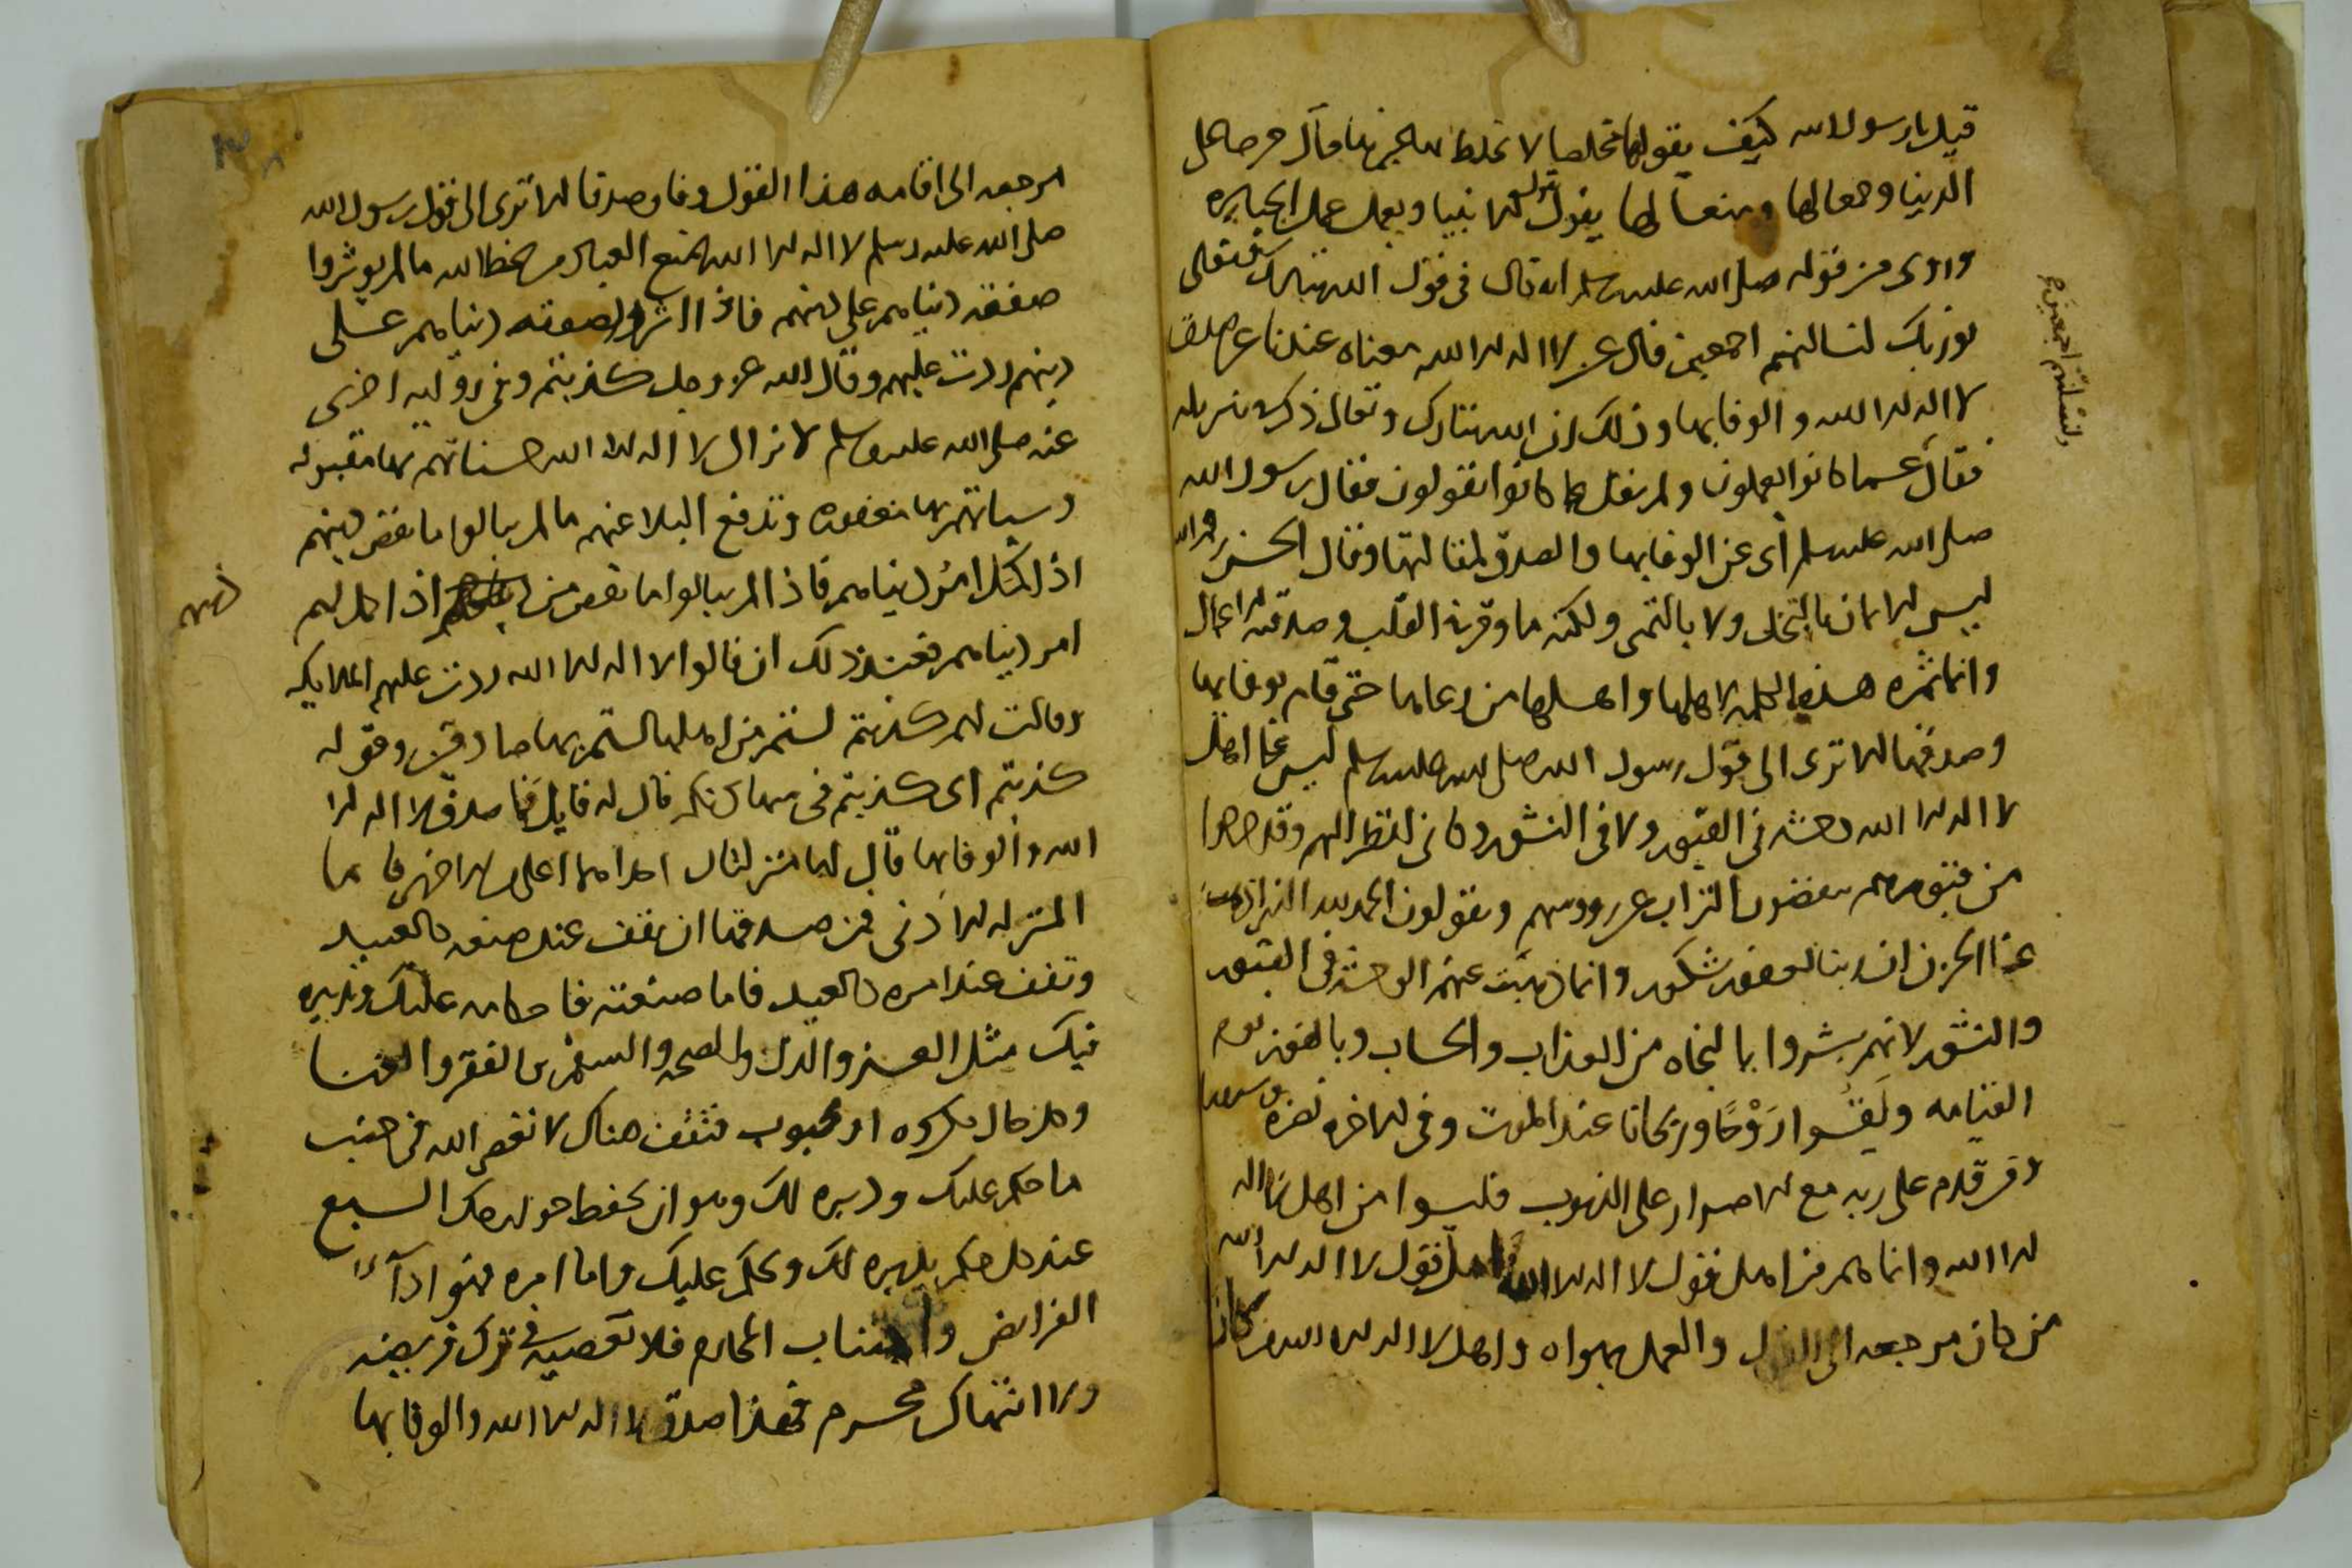 قيل يا رسول الله كيف يقولها مخلصا لا يخلط معها غيرها قال حرصا على
الدنيا وجمعا لها ومنعا لها يقول قول الانبيا ويعمل عمل الجبابره
وروى من قوله صلى الله عليه وسلم انه قال فى قول الله تبارك وتعالى
فوربك لنسالنهم اجمعين قال عن لا اله الا الله معناه عندنا عن صدق
لا اله الا الله والوفا بها وذلك ان الله تبارك وتعالى ذكر فى تنزيله
فقال عما كانوا يعملون ولم يقل عما كانوا يقولون فقال رسول الله
صلى الله عليه وسلم أى عن الوفا بها والصدق لمقالتها وقال الحسن رحمه الله
ليس الايمان بالتحلى ولا بالتمنى ولكنه ما وقر فى القلب وصدقته الاعمال
وانما ثمره هذه الكلمه لاهلها واهلها من رعاها حتى قام بوفايها
وصدقها الا ترى الى قول رسول الله صلى الله عليه وسلم ليس على اهل
لا اله الا الله وحشه فى القبور ولا فى النشور وكانى انظر اليهم وقد خرجوا
من قبورهم ينفضون التراب عن رووسهم ويقولون الحمد لله الذى اذهب
عنا الحزن ان ربنا لغفور شكور وانما ذهبت عنهم الوحشه فى القبور
والنشور لانهم بشروا بالنجاه من العذاب والحساب وبالفوز يوم
القيامه ولقوا رَوْحًا وريحانا عند الموت وفى الاخره نضره وسرورا
ومن قدم على ربه مع الاصرار على الذنوب فليسوا من اهل لا اله
الا الله وانما هم من اهل قول لا اله الا الله اهل قول لا اله الا الله
من كان مرجعه الى القول والعمل بهواه واهل لا اله الا الله من كان
ولنسلنهم اجمعين
مرجعه الى اقامه هذا القول وفا وصدقا الا ترى الى قول رسول الله
صلى الله عليه وسلم لا اله الا الله تمنع العباد من سخط الله ما لم يوثروا
صفقه دنياهم على دينهم فاذا اثروا صفقه دنياهم على
دينهم ردت عليهم وقال الله عز وجل كذبتم وفى روايه اخرى
عنه صلى الله عليه وسلم لا تزال لا اله الا الله حسناتهم بها مقبوله
وسياتهم بها مغفوره وتدفع البلا عنهم ما لم يبالوا ما نقص من دينهم
اذا كمل امر دنياهم فاذا لم يبالوا ما نقص من اذا كمل لهم
دينهم
امر دنياهم فعند ذلك ان قالوا لا اله الا الله ردت عليهم الملايكه
وقالت لهم كذبتم لستم من اهلها لستم بها صادقين وقوله
كذبتم اى كذبتم فى مقالتكم قال له قايل فما صدق لا اله الا
الله والوفا بها قال لها منزلتان احداهما اعلى من الاخرى فاما
المنزله الادنى فمن صدقها ان تقف عند صنعه كالعبيد
وتقف عند امره كالعبيد فاما صنعته فاحكامه عليك وتدبيره
فيك مثل العز والذل والصحه والسقم والفقر والغنا
وكل حال مكروه او محبوب فتقف هناك لا تعص الله فى جنب
ما حكم عليك ودبره لك وهو ان تحفظ جوارحك السبع
عند كل حكم يدبره لك ويحكم عليك واما امره فهو ادآء
الفرايض واجتناب المحارم فلا تعصيه فى ترك فريضه
ولا انتهاك محرم فهذا صدق لا اله الا الله والوفا بها